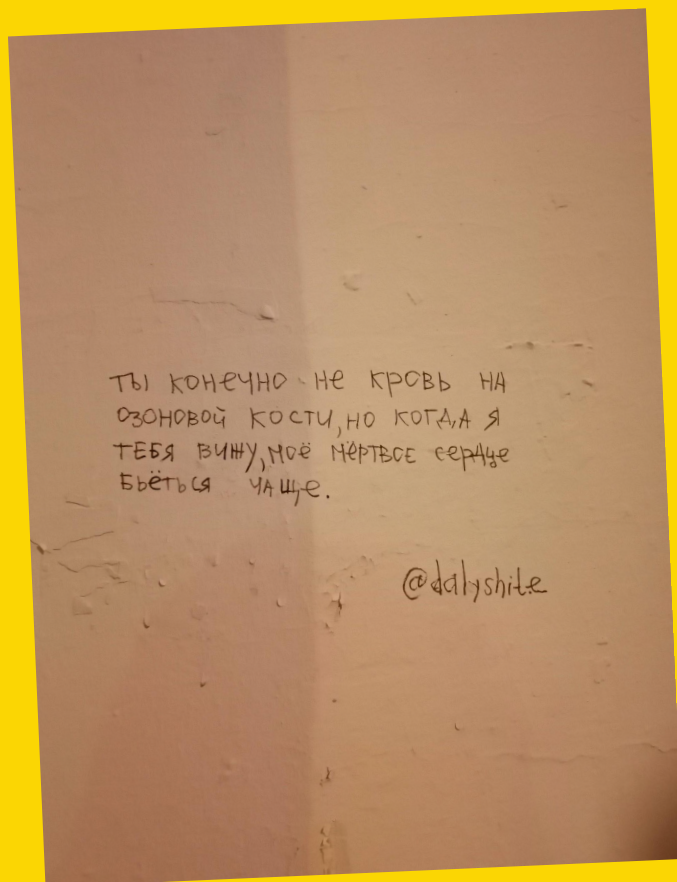 ты конечно не кровь на
озоновой кости, но когда я
тебя вижу, моё мёртвое сердце
бьёться чаще.
@dalyshite